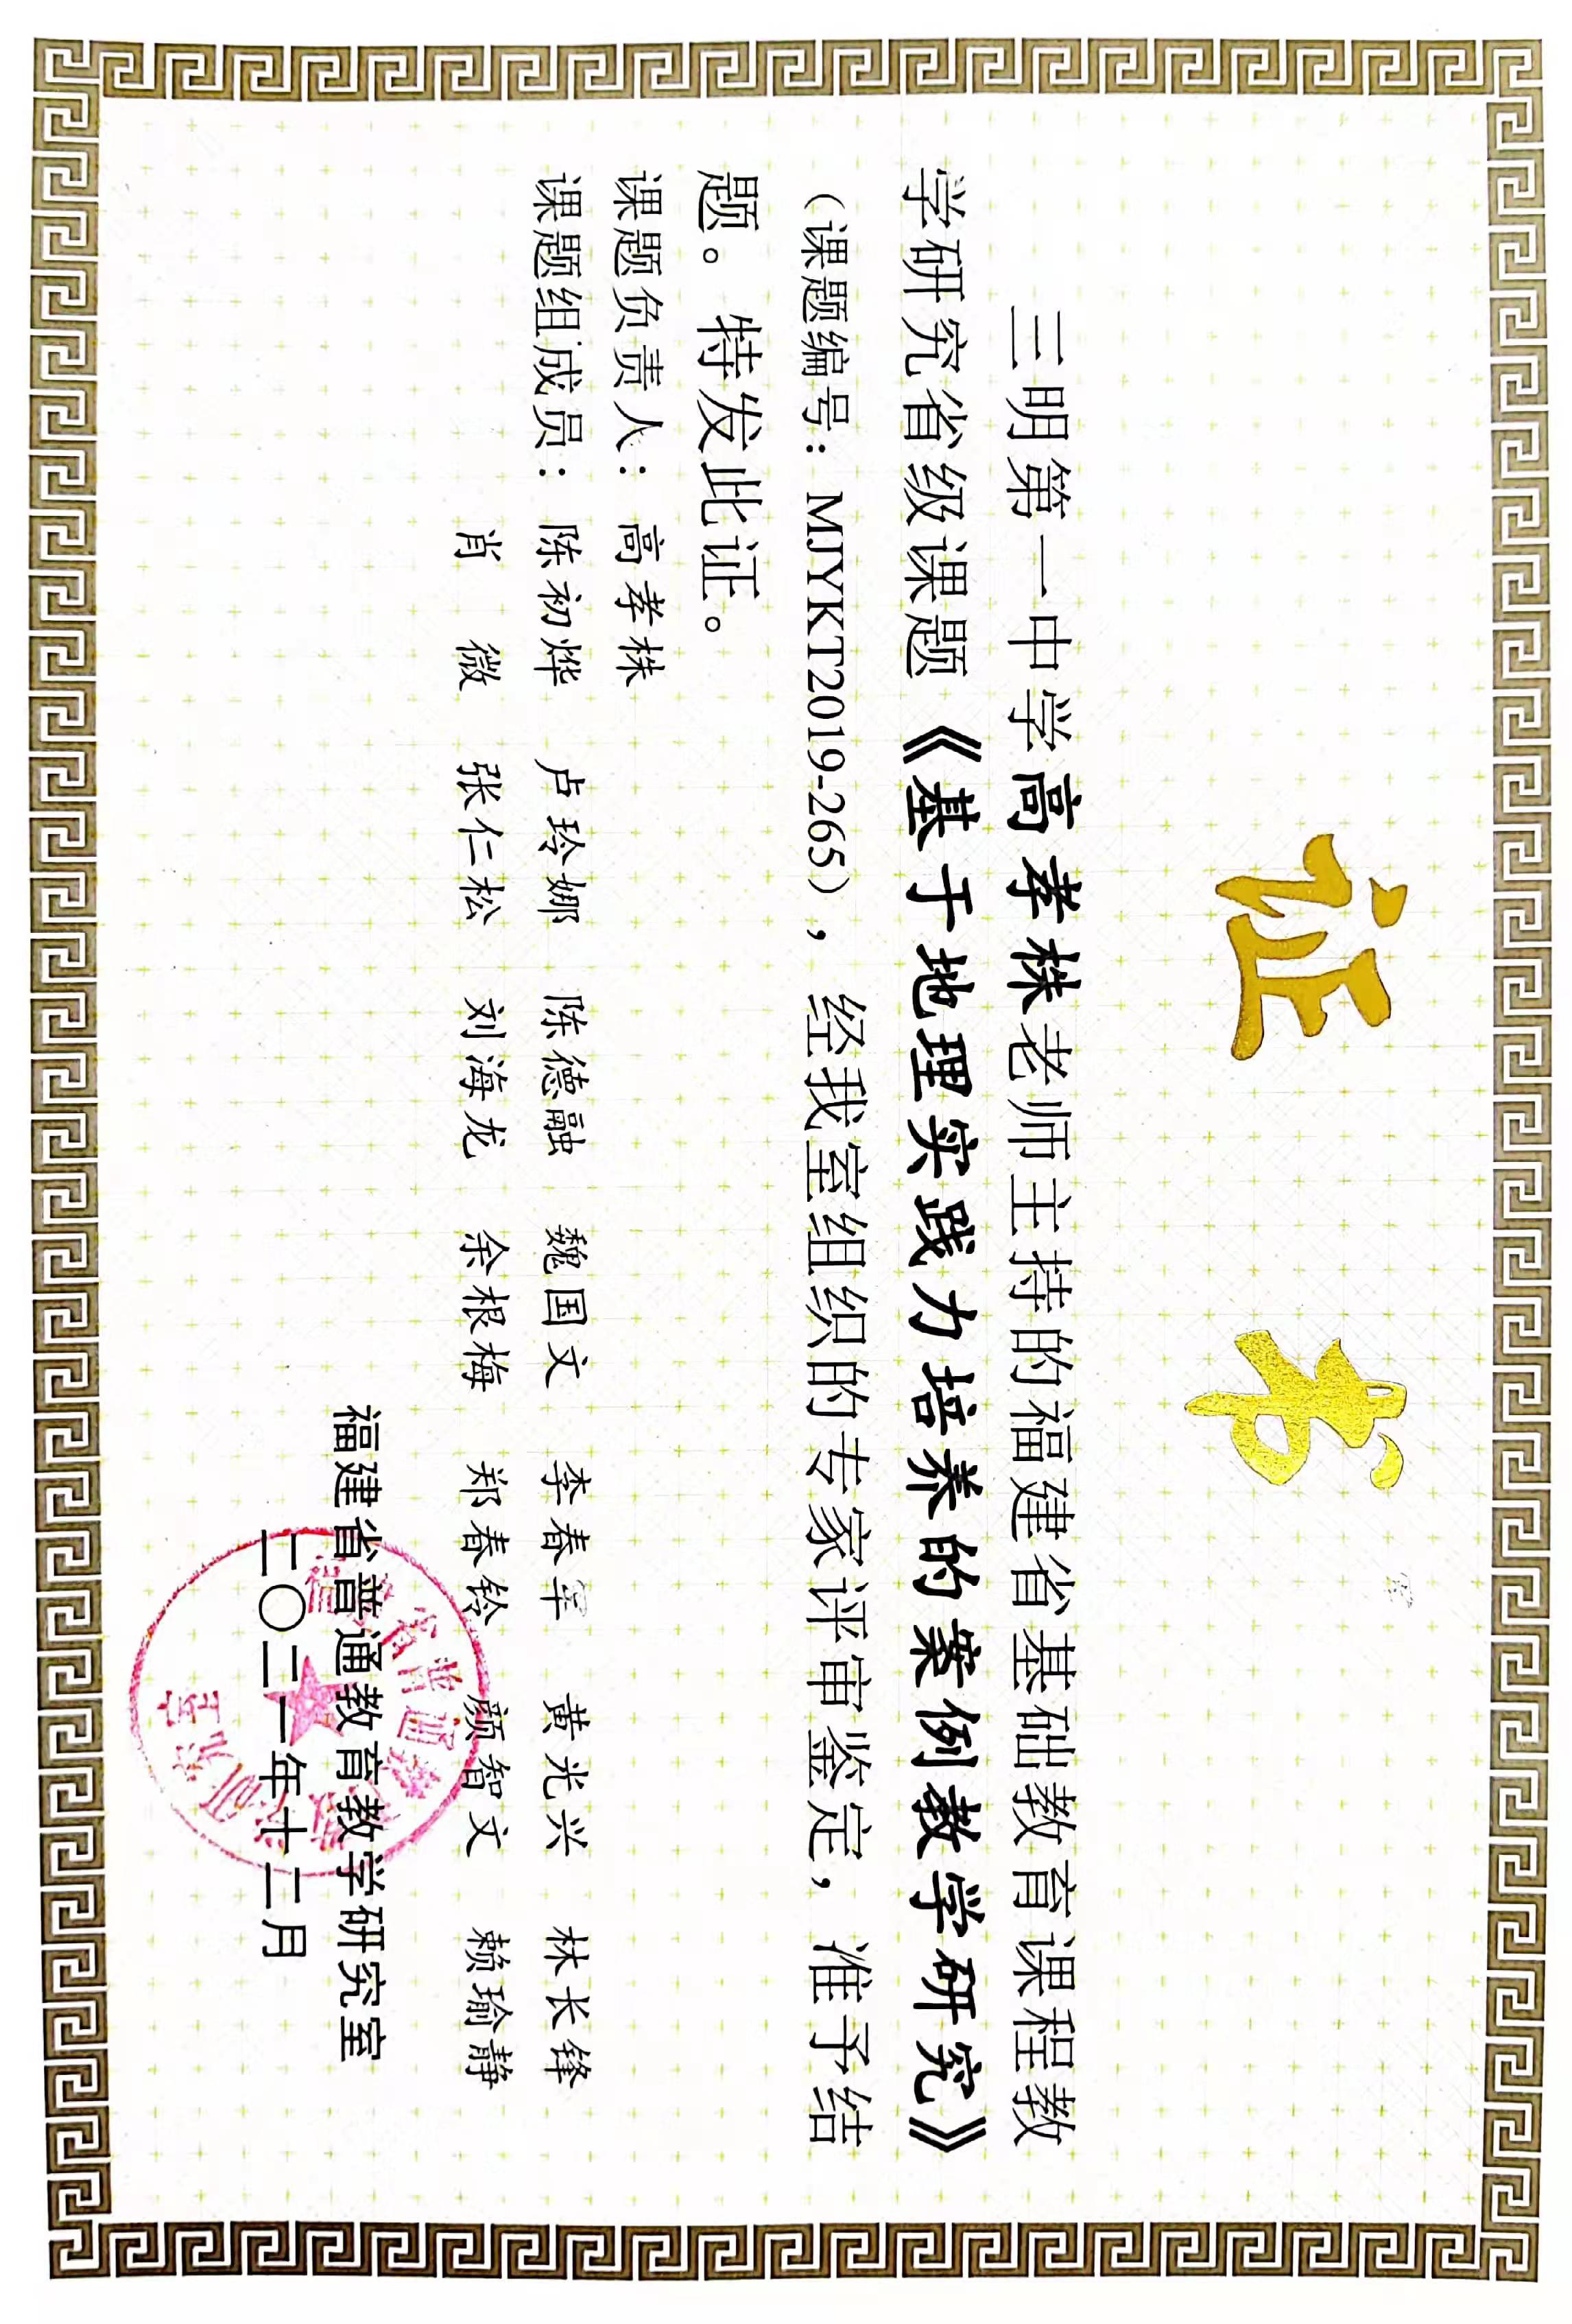 证书
三明第一中学高孝株老师主持的福建省基础教育课程教
学研究省级课题《基于地理实践力培养的案例教学研究》
（课题编号：MJYKT2019-265），经我室组织的专家评审鉴定，准予结
题。特发此证。
课题负责人：高孝株
课题组成员：陈初烨 卢玲娜 陈德融 魏国文 李春军 黄光兴 林长锋
肖 微 张仁松 刘海龙 余根梅 郑春铃 颜智文 赖瑜静
福建省普通教育教学研究室
二〇二一年十二月